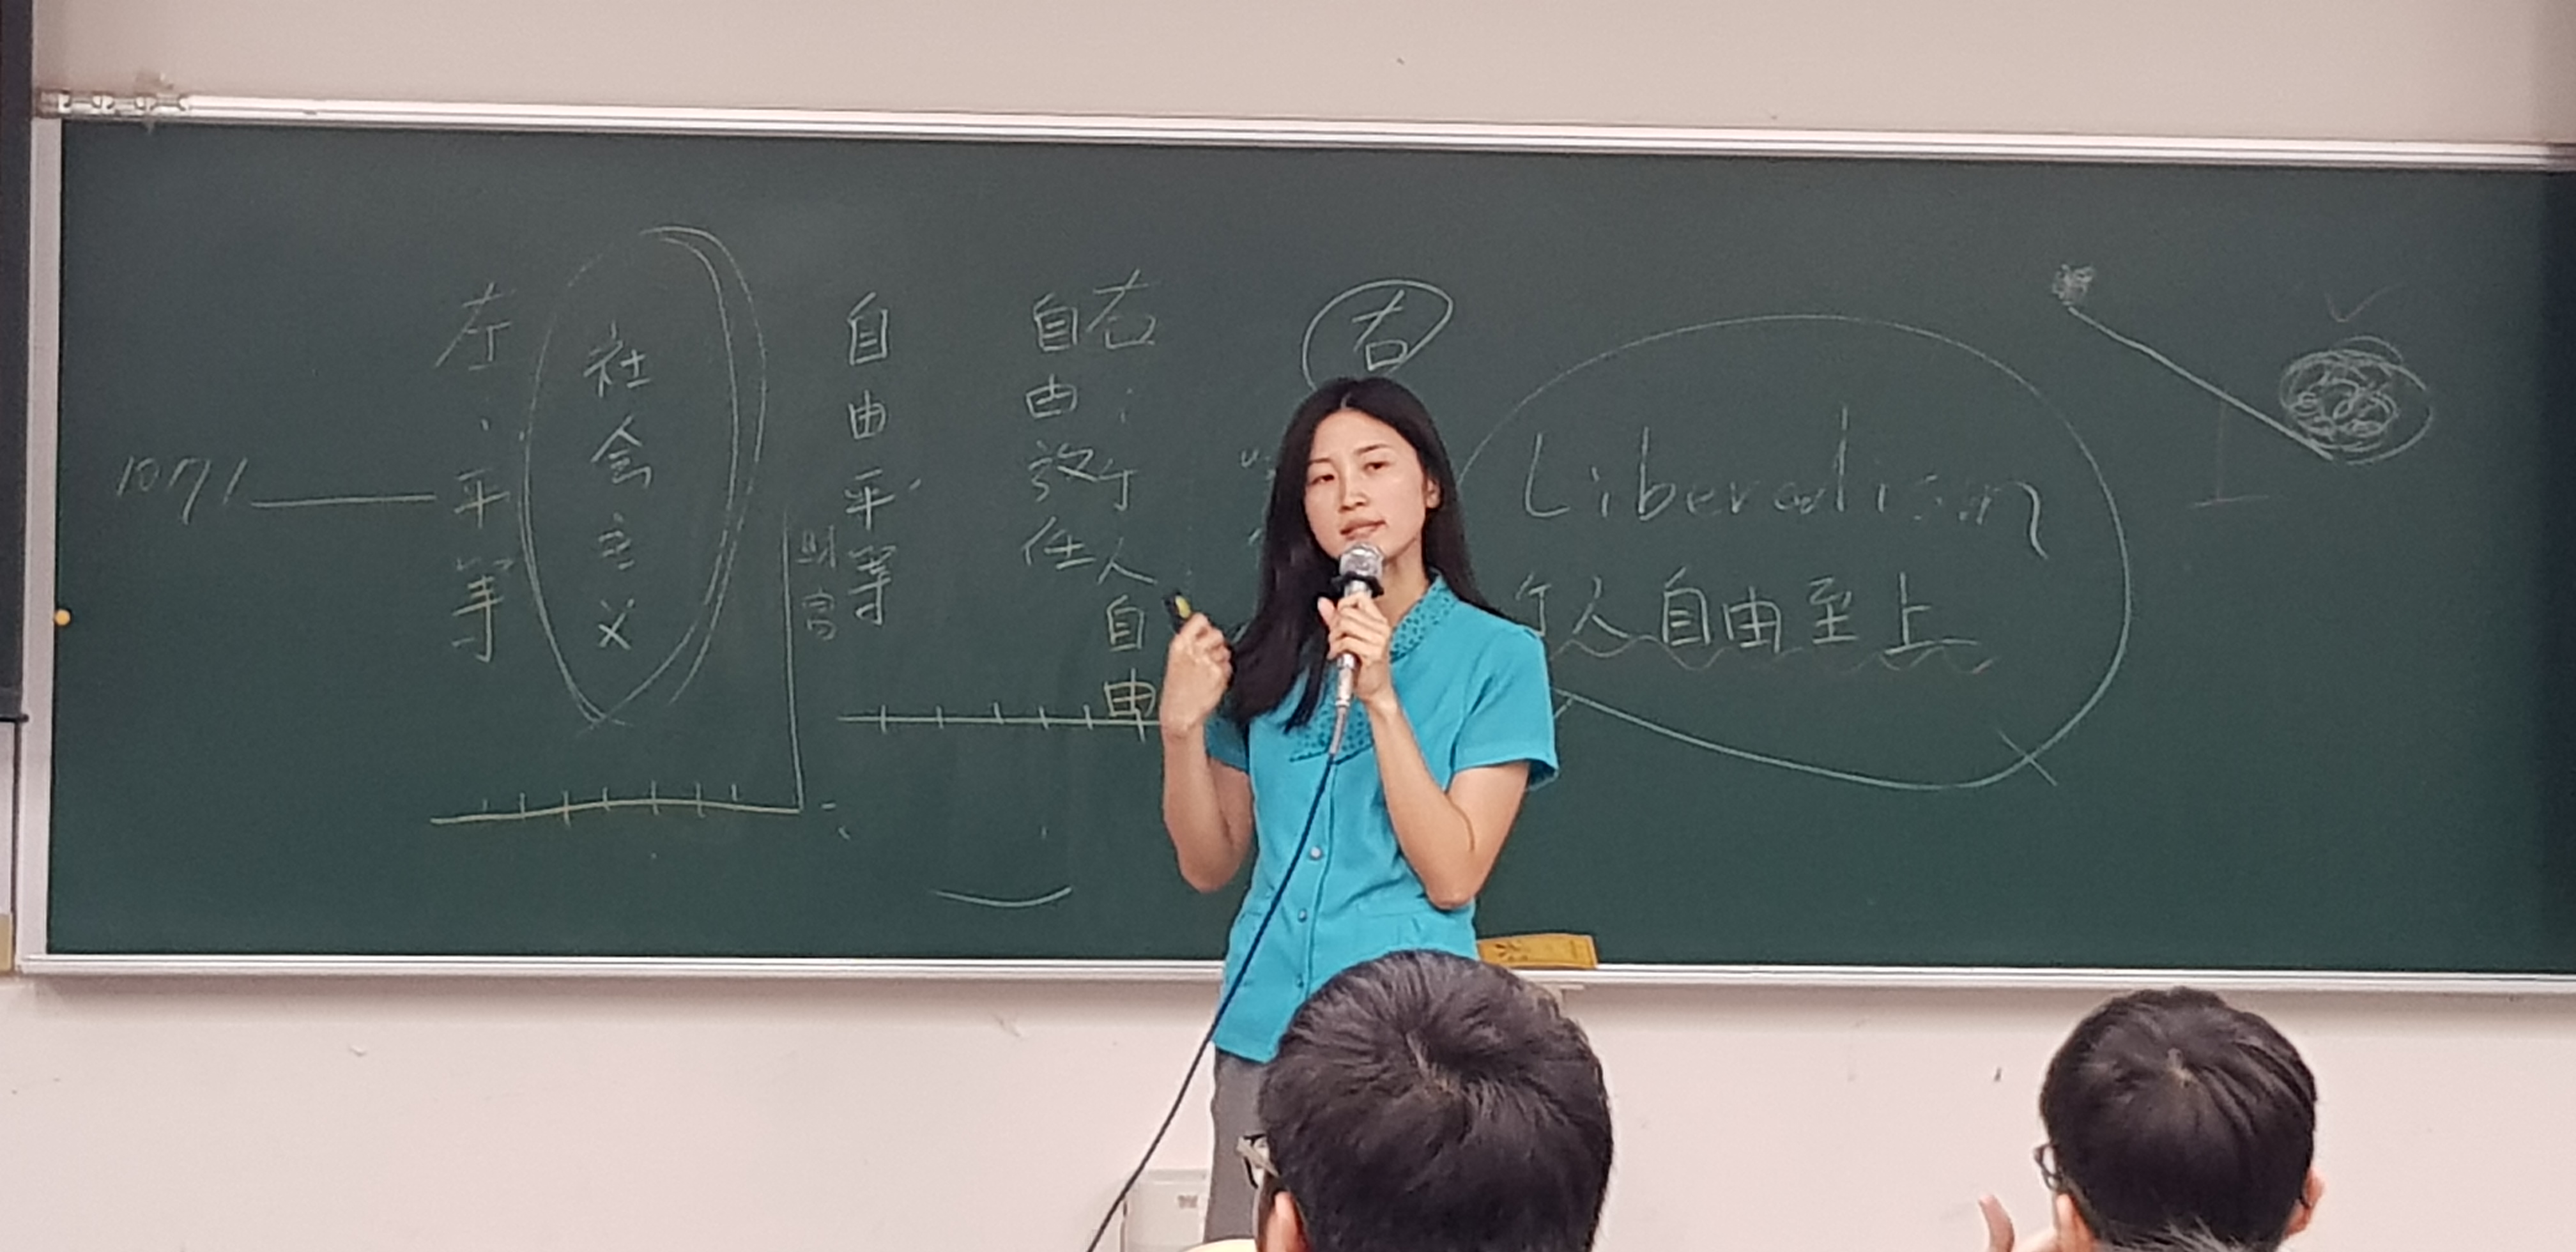 左：平等
社会主义
財富
自由平等
自由放任
右：个人自由
右
Liberalism
个人自由至上